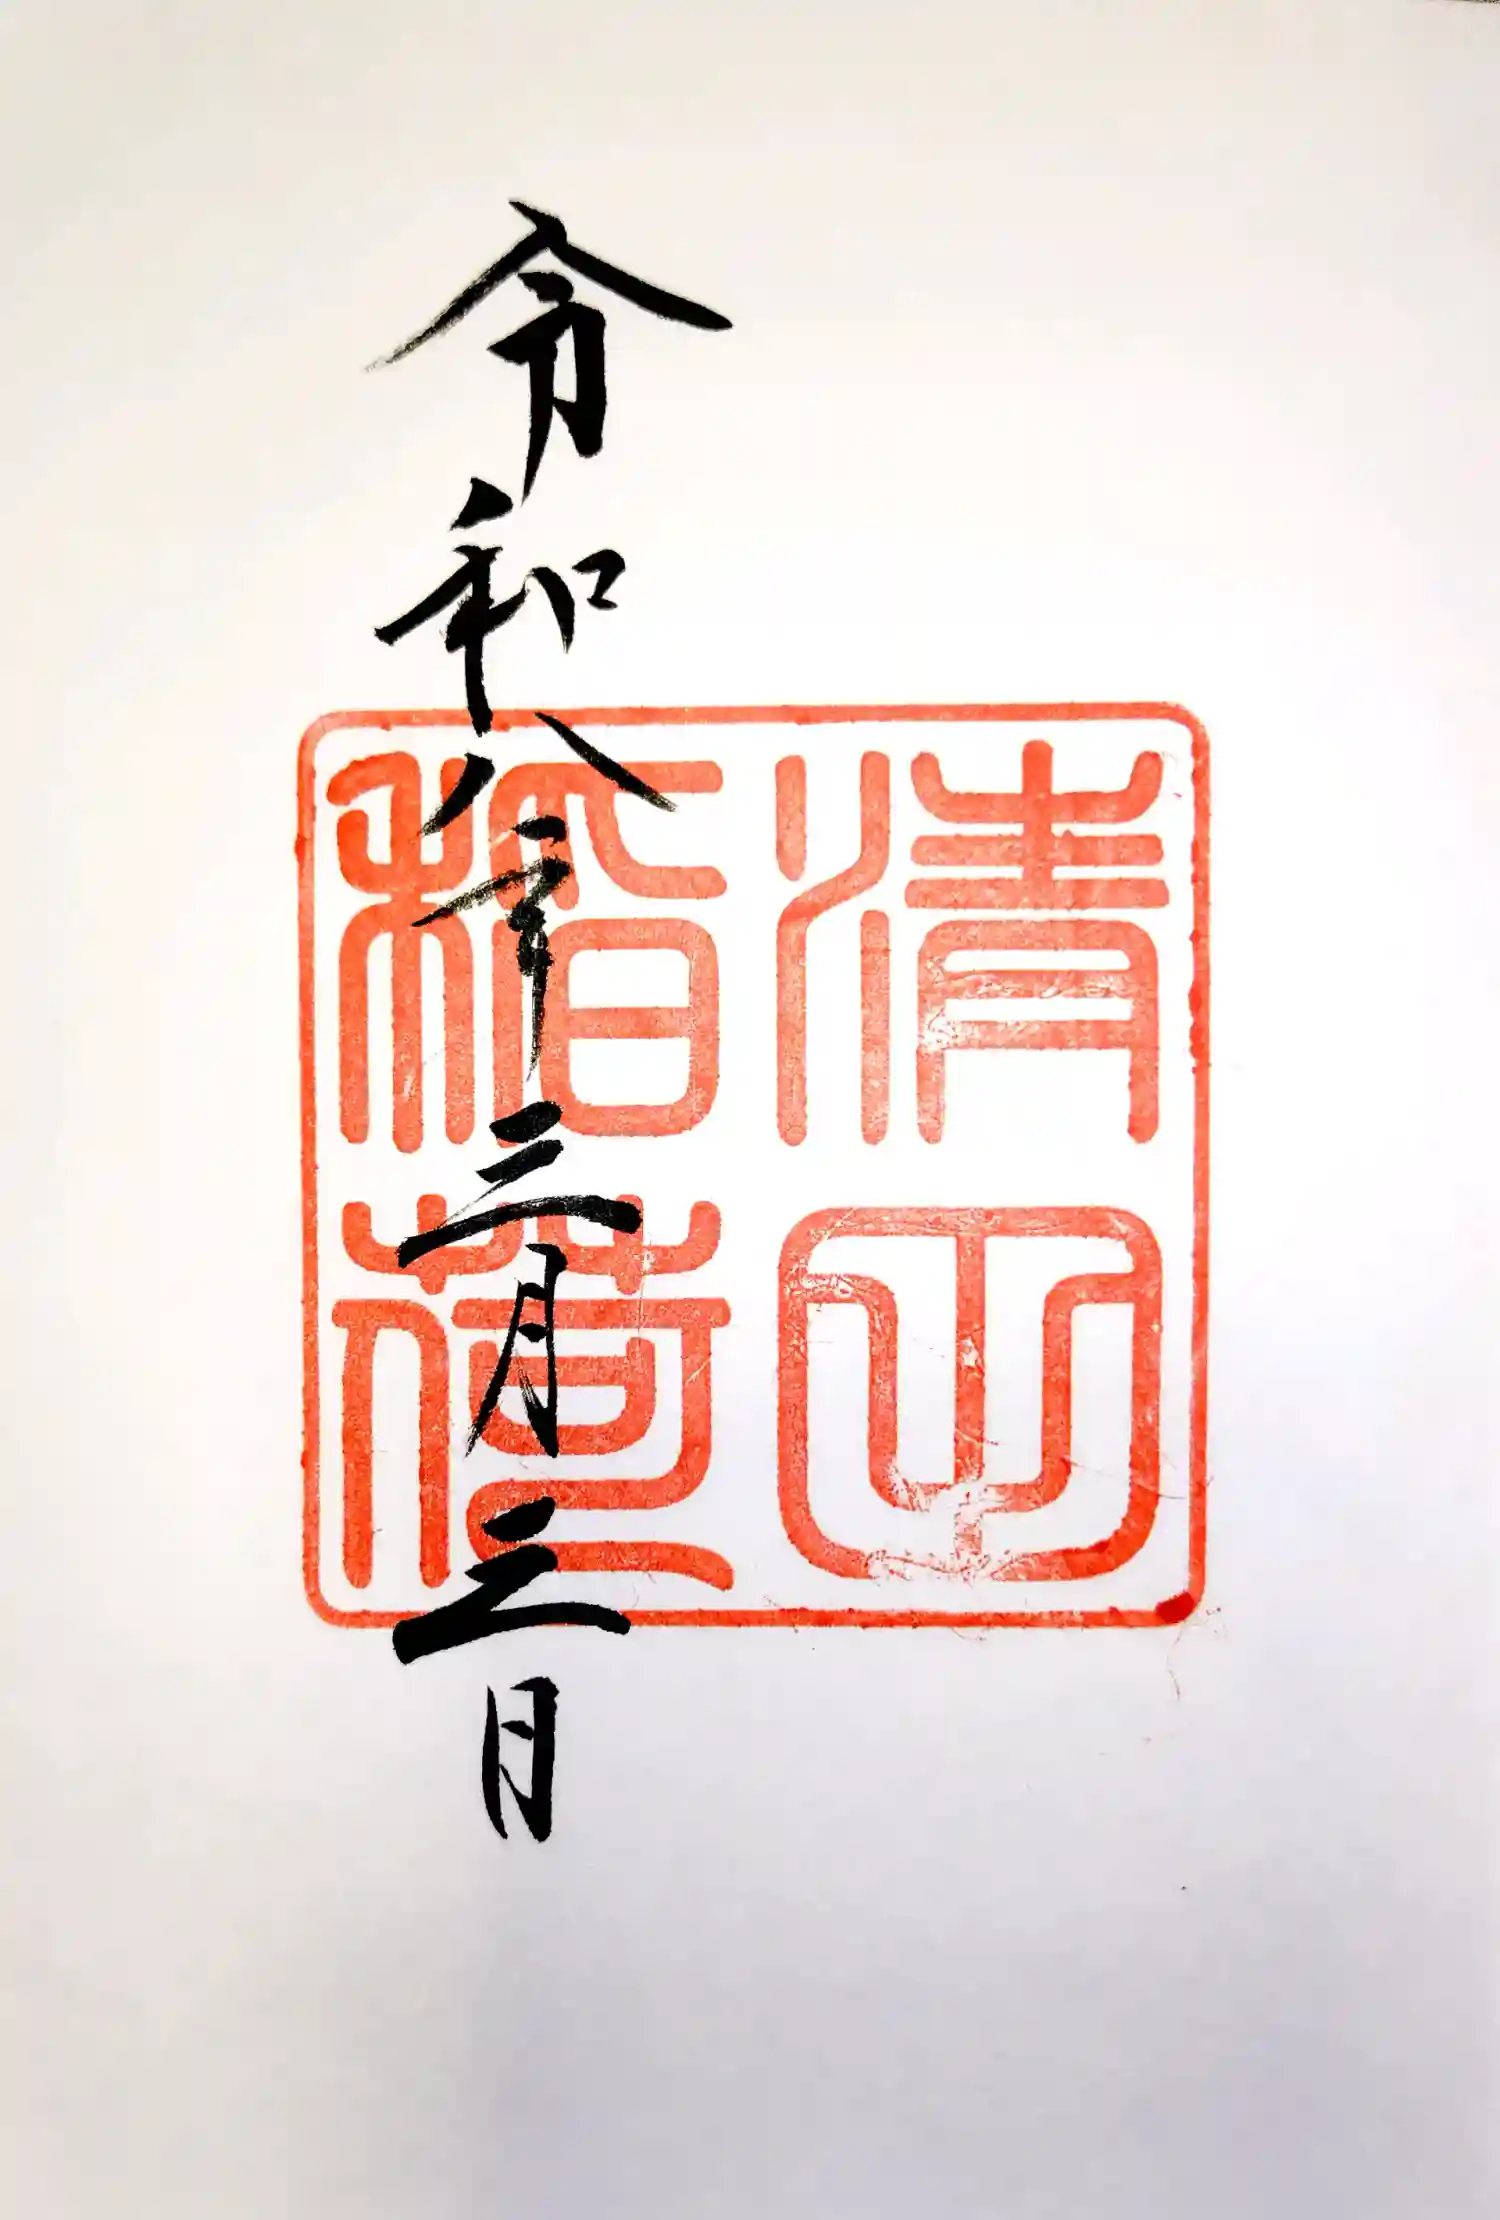 清山
稲荷
令和八年三月三日